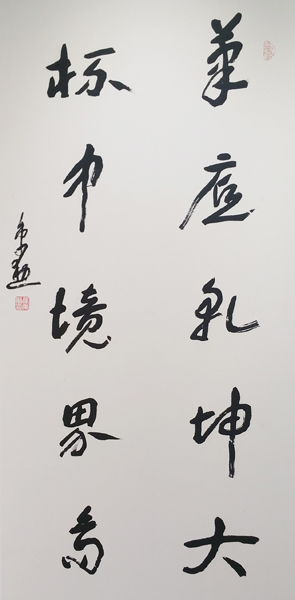 葉底乾坤大
杯中境界高